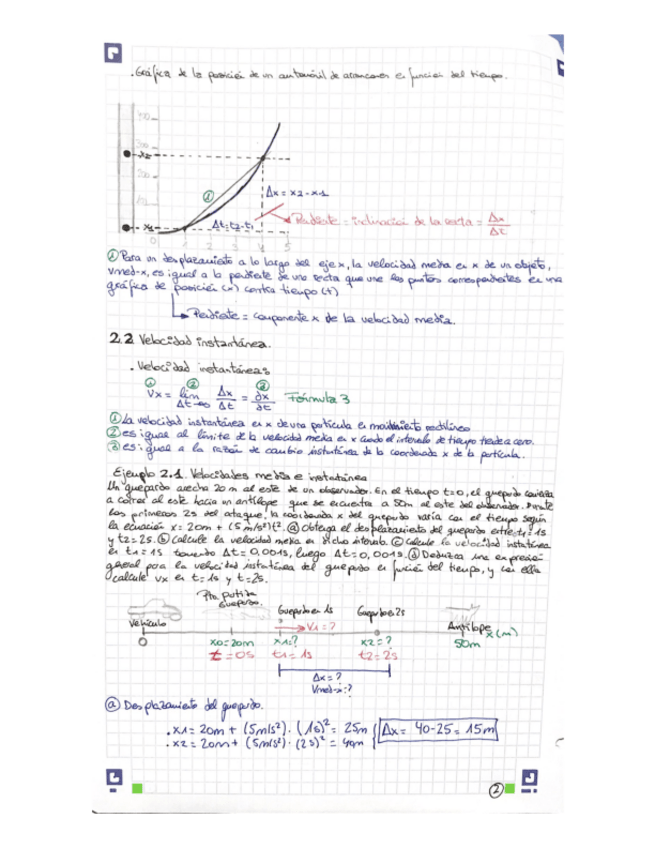 . Gráfica de la posición de un automóvil de arrancones en función del tiempo.
x2
Δx = x2 - x1
①
Pendiente = inclinación de la recta = Δx/Δt
x1
Δt = t2 - t1
0 1 2 3 4 5
① Para un desplazamiento a lo largo del eje x, la velocidad media en x de un objeto,
vmed-x, es igual a la pendiente de una recta que une los puntos correspondientes en una
gráfica de posición (x) contra tiempo (t)
Pendiente = componente x de la velocidad media.
2.2 Velocidad instantánea.
. Velocidad instantánea
① ② ③
Vx = lím Δt→0 Δx/Δt = ∂x/∂t Fórmula 3
① La velocidad instantánea en x de una partícula en movimiento rectilíneo
② es igual al límite de la velocidad media en x cuando el intervalo de tiempo tiende a cero.
③ es igual a la razón de cambio instantánea de la coordenada x de la partícula.
Ejemplo 2.1. Velocidades media e instantánea
Un guepardo acecha 20 m al este de un observador. En el tiempo t=0, el guepardo comienza
a correr al este hacia un antílope que se encuentra a 50m al este del observador. Durante
los primeros 2s del ataque, la coordenada x del guepardo varía con el tiempo según
la ecuación x = 20m + (5 m/s²)t². ⓐ Obtenga el desplazamiento del guepardo entre t1 = 1s
y t2 = 2s. ⓑ Calcule la velocidad media en dicho intervalo. ⓒ Calcule la velocidad instantánea
en t1 = 1s tomando Δt = 0,001s, luego Δt = 0,001s. ⓓ Deduzca una expresión
general para la velocidad instantánea del guepardo en función del tiempo, y con ella
calcule vx en t = 1s y t = 2s.
Pto. partida
Guepardo.
Guepardo en 1s
Guepardo en 2s
Vehículo
V1 = ?
Antílope
x (m)
0
x0 = 20m
x1 = ?
x2 = ?
50m
t = 0s
t1 = 1s
t2 = 2s
Δx = ?
Vmed-x = ?
ⓐ Desplazamiento del guepardo.
. x1 = 20m + (5m/s²) · (1s)² = 25m
Δx = 40 - 25 = 15m
. x2 = 20m + (5m/s²) · (2s)² = 40m
②